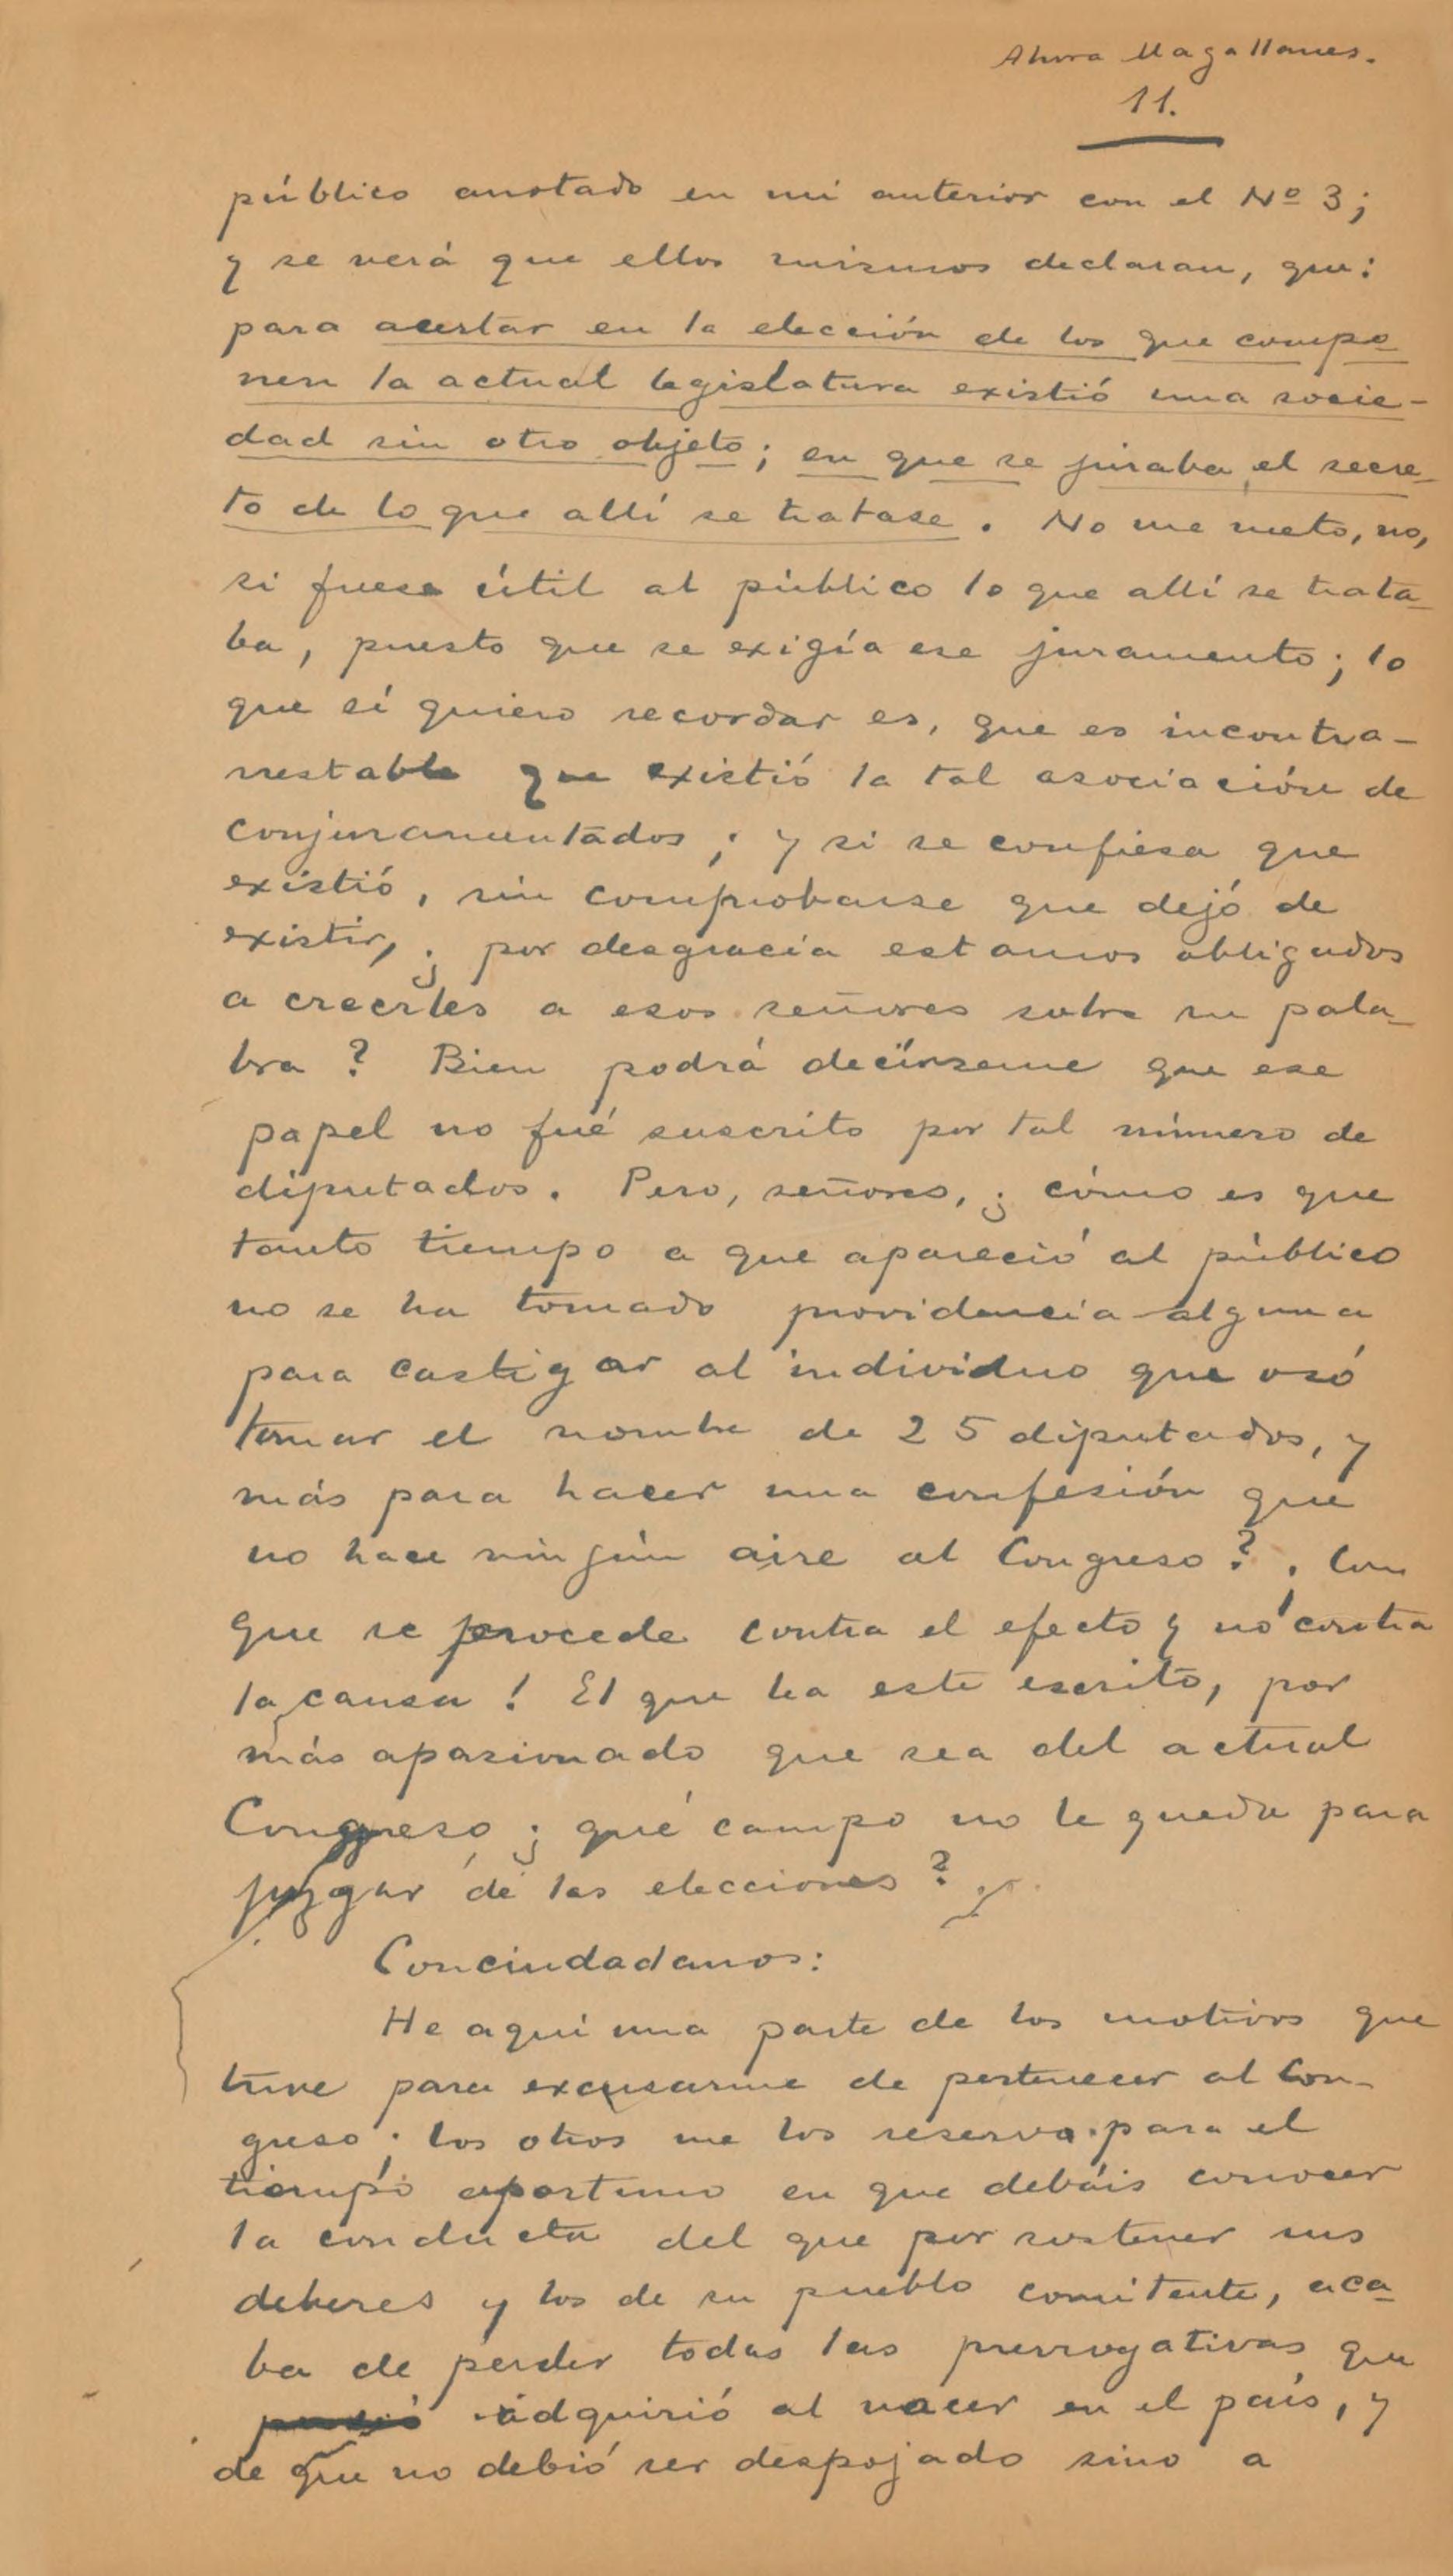 Ahora Magallanes.
11.
público anotado en mi anterior con el Nº 3;
y se verá que ellos mismos declaran, que:
para acertar en la elección de los que compo
nen la actual legislatura existió una socie-
dad sin otro objeto; en que se juraba el secre
to de lo que allí se tratase. No me meto, no,
si fuese útil al público lo que allí se trata
ba, puesto que se exigía ese juramento; lo
que sí quiero recordar es, que es incontra-
restable que existió la tal asociación de
conjuramentados; y si se confiesa que
existió, sin comprobarse que dejó de
existir, ¿por desgracia estamos obligados
a creerles a esos señores sobre su pala
bra? Bien podrá decírseme que ese
papel no fué suscrito por tal número de
diputados. Pero, señores, ¿cómo es que
tanto tiempo a que apareció al público
no se ha tomado providencia alguna
para castigar al individuo que osó
tomar el nombre de 25 diputados, y
más para hacer una confesión que
no hace ningún aire al Congreso? ¡Con
que se procede contra el efecto y no contra
la causa! El que lea este escrito, por
más apasionado que sea del actual
Congreso ¿qué campo no le queda para
juzgar de las elecciones?
Conciudadanos:
He aquí una parte de los motivos que
tuve para excusarme de pertenecer al Con-
greso; los otros me los reservo para el
tiempo oportuno en que debáis conocer
la conducta del que por sostener sus
deberes y los de su pueblo comitente, aca
ba de perder todas las prerrogativas que
adquirió al nacer en el país, y
de que no debió ser despojado sino a